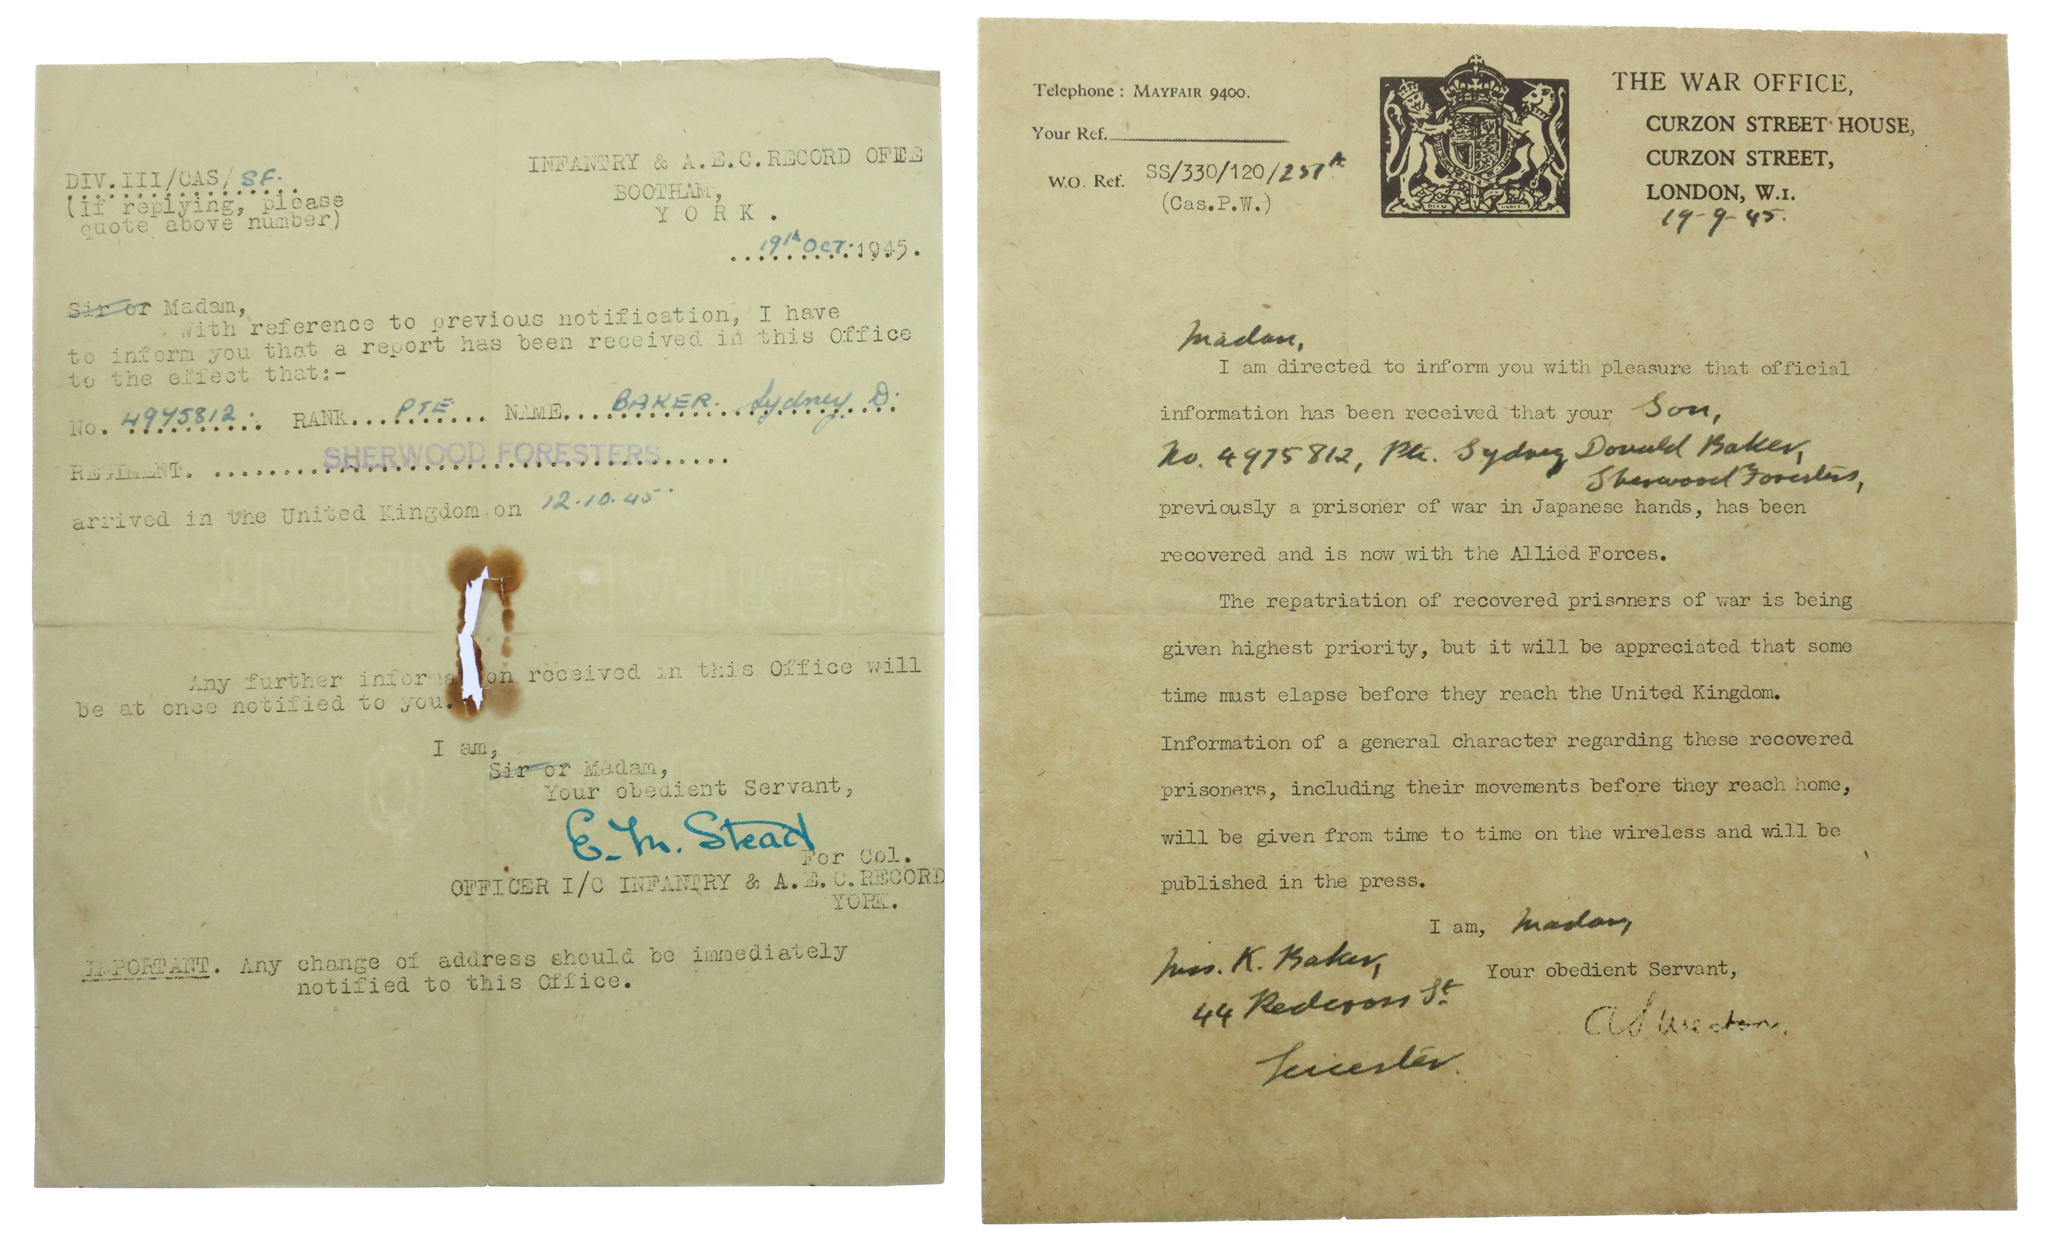 DIV.III/CAS/SF.
(If replying, please
quote above number)
INFANTRY & A.E.C.RECORD OFFICE
BOOTHAM,
YORK.
19th OCT. 1945.
Sir or Madam,
With reference to previous notification, I have
to inform you that a report has been received in this Office
to the effect that:-
No. 4975812. RANK PTE NAME BAKER. Sydney D.
REGIMENT. SHERWOOD FORESTERS
arrived in the United Kingdom on 12.10.45.
Any further information received in this Office will
be at once notified to you.
I am,
Sir or Madam,
Your obedient Servant,
E. M. Stead
For Col.
OFFICER I/C INFANTRY & A.E.C.RECORD
YORK.
IMPORTANT. Any change of address should be immediately
notified to this Office.
Telephone: MAYFAIR 9400.
Your Ref.
W.O. Ref. SS/330/120/
(Cas.P.W.)
THE WAR OFFICE,
CURZON STREET HOUSE,
CURZON STREET,
LONDON, W.1.
19-9-45.
Madam,
I am directed to inform you with pleasure that official
information has been received that your Son,
No. 4975812, Pte. Sydney Donald Baker,
Sherwood Foresters,
previously a prisoner of war in Japanese hands, has been
recovered and is now with the Allied Forces.
The repatriation of recovered prisoners of war is being
given highest priority, but it will be appreciated that some
time must elapse before they reach the United Kingdom.
Information of a general character regarding these recovered
prisoners, including their movements before they reach home,
will be given from time to time on the wireless and will be
published in the press.
I am, Madam,
Your obedient Servant,
Mrs. K. Baker,
44 Redcross St.
Leicester.